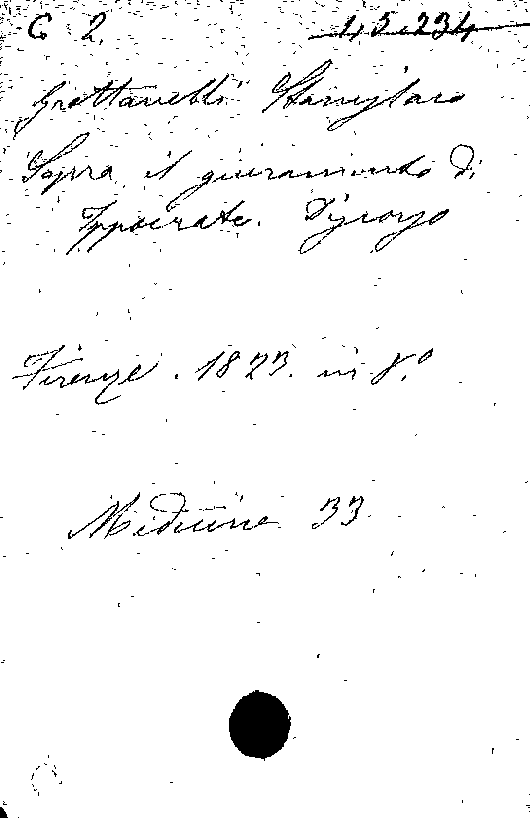 C 2. 1,5.234
Grottanelli Stanislao
Sopra il giuramento di
Ippocrate. Discorso
Firenze. 1823. in 8.º
Medicine 33